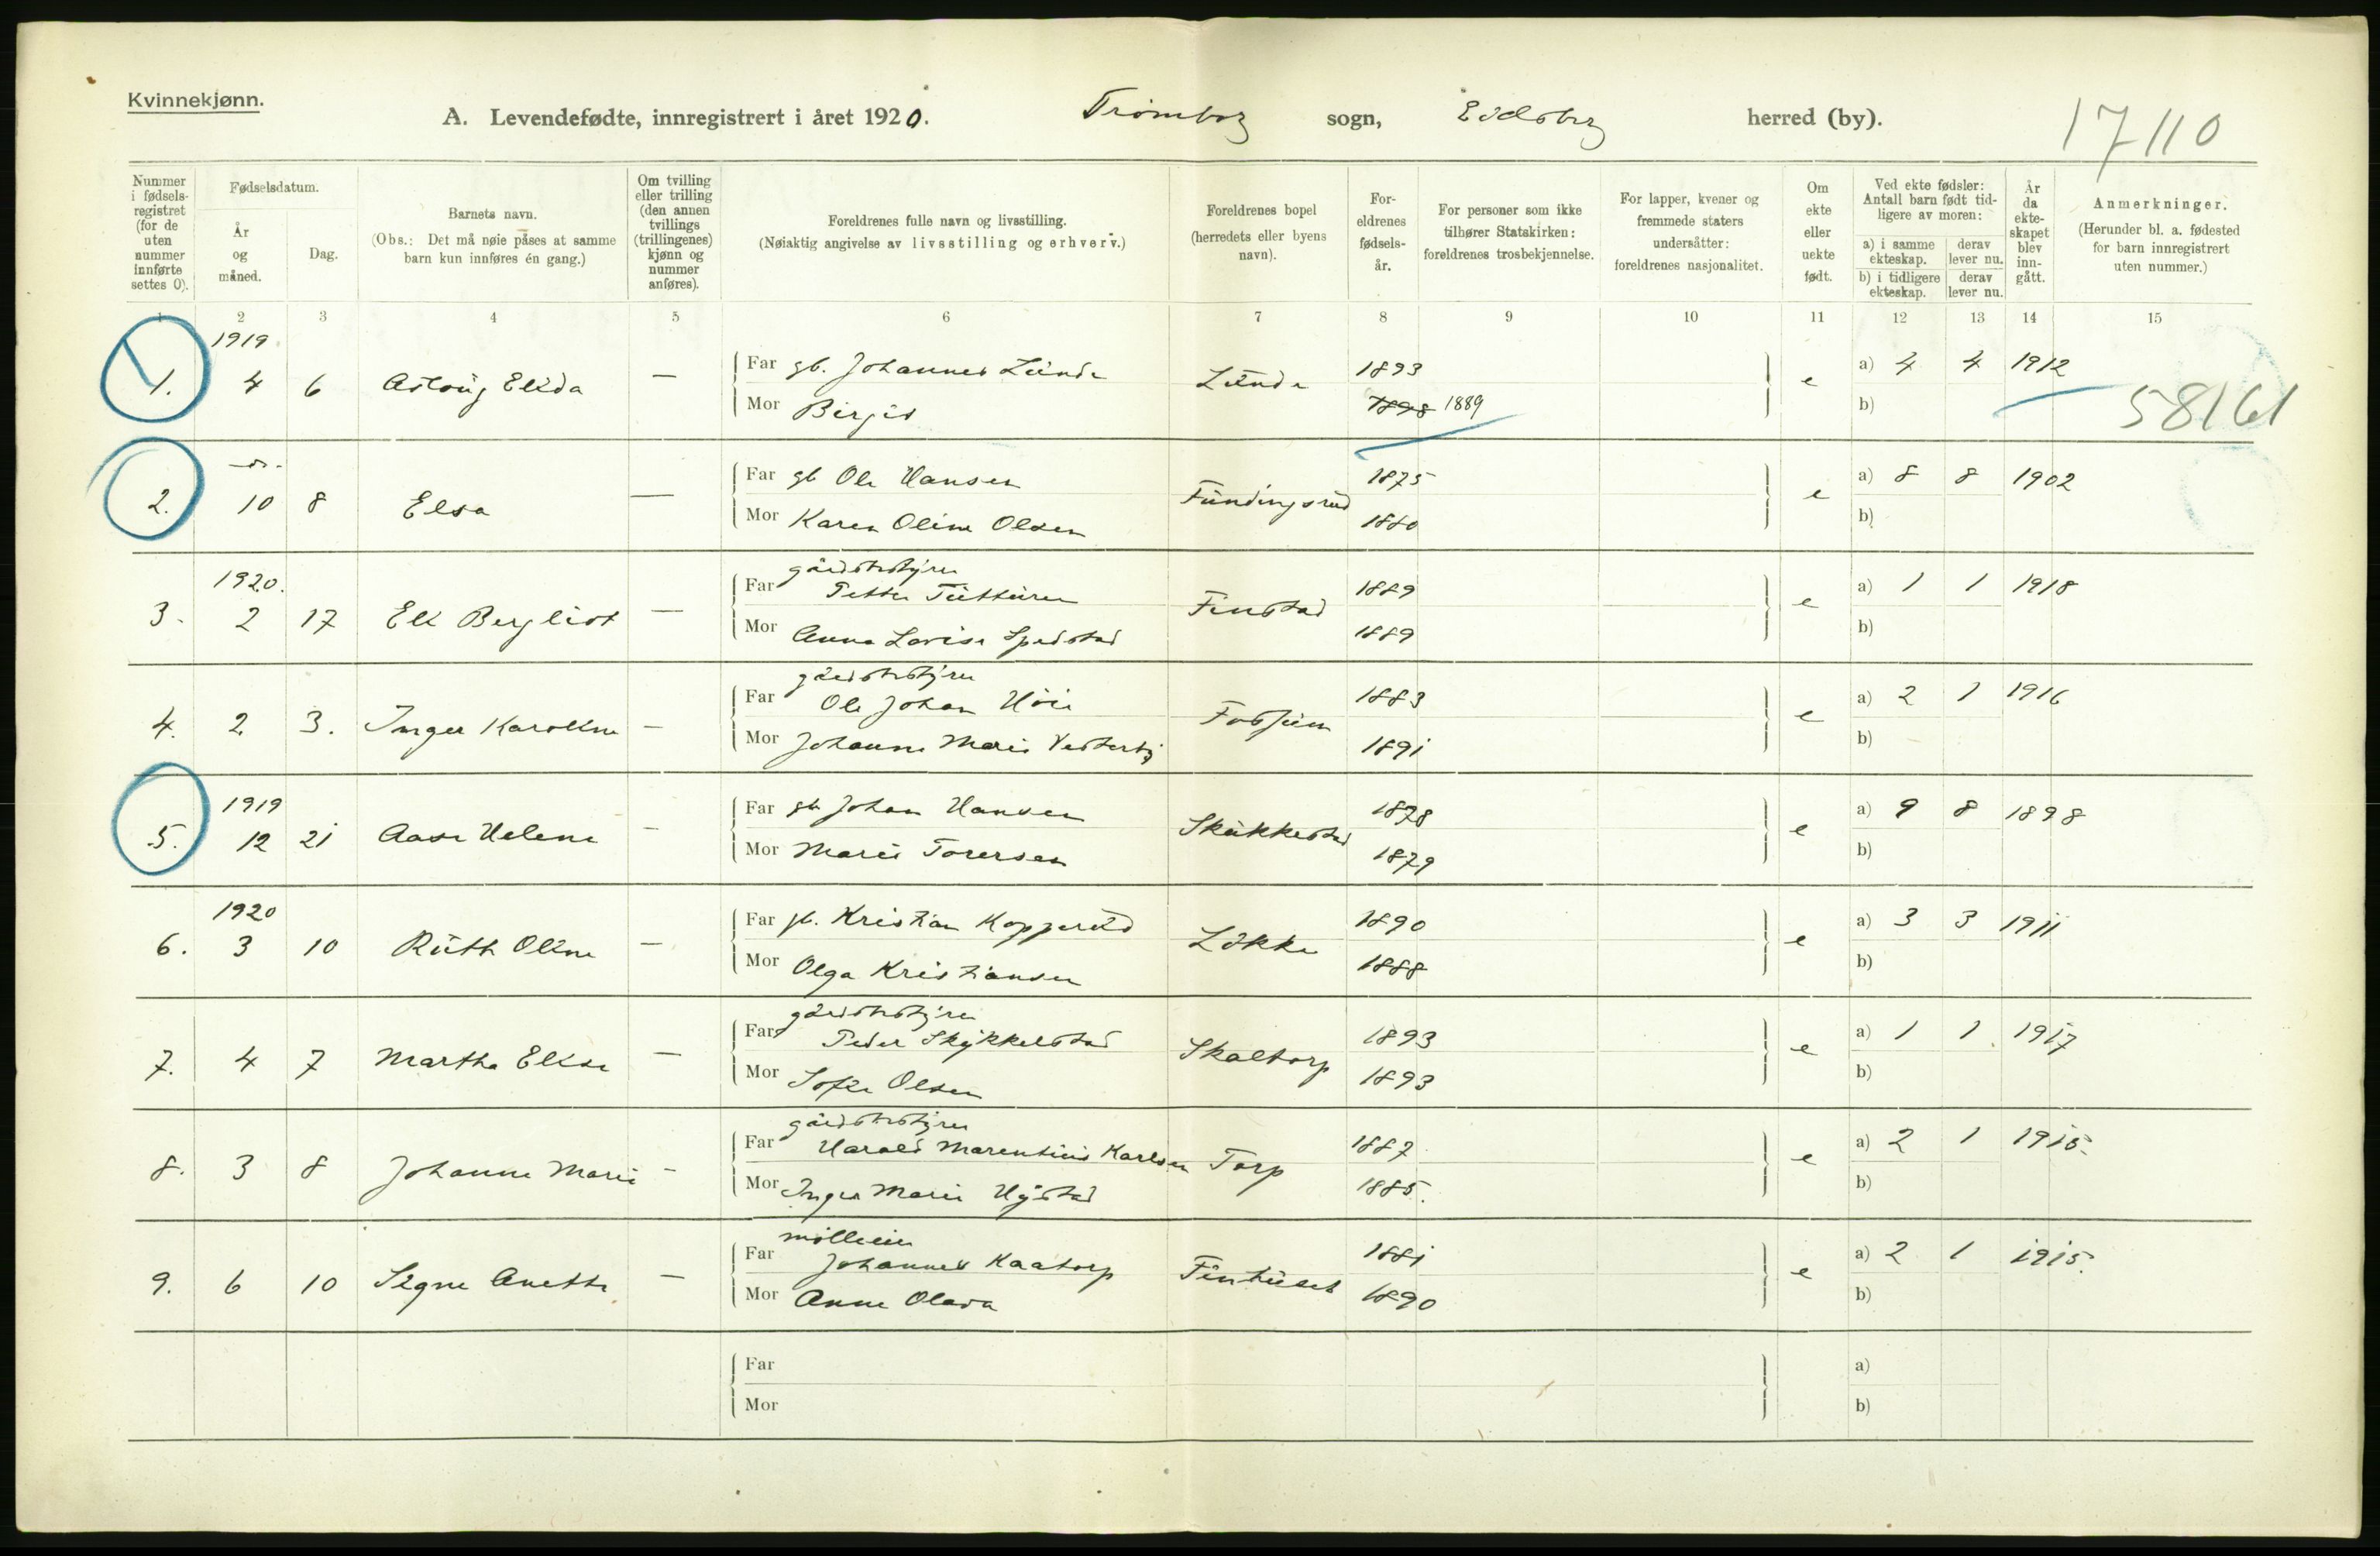 Kvinnekjønn.
A. Levendefødte, innregistrert i året 1920. Trømborg sogn, Eidsberg herred (by).
17110
Nummer i fødsels-registret (for de uten nummer innførte settes 0).
Fødselsdatum.
År og måned.
Dag.
Barnets navn.
(Obs.: Det må nøie påses at samme barn kun innføres én gang.)
Om tvilling eller trilling (den annen tvillings (trillingenes) kjønn og nummer anføres).
Foreldrenes fulle navn og livsstilling.
(Nøiaktig angivelse av livsstilling og erhverv.)
Foreldrenes bopel (herredets eller byens navn).
For-eldrenes fødsels-år.
For personer som ikke tilhører Statskirken: foreldrenes trosbekjennelse.
For lapper, kvener og fremmede staters undersåtter: foreldrenes nasjonalitet.
Om ekte eller uekte født.
Ved ekte fødsler: Antall barn født tid-ligere av moren:
a) i samme ekteskap. derav lever nu.
b) i tidligere ekteskap. derav lever nu.
År da ekte-skapet blev inn-gått.
Anmerkninger.
(Herunder bl. a. fødested for barn innregistrert uten nummer.)
1 2 3 4 5 6 7 8 9 10 11 12 13 14 15
1919
1. 4 6 Aslaug Elida — Far gb. Johannes Lunde Lunde 1893 e a) 4 4 1912
Mor Birgit 1898 1889 b) 58161
-do-
2. 10 8 Elsa — Far gb Ole Hansen Fundingsrud 1875 e a) 8 8 1902
Mor Karen Oline Olsen 1880 b)
1920. gårdbestyrer
3. 2 17 Eli Bergliot — Far Petter Tutturen Finstad 1889 e a) 1 1 1918
Mor Anna Lovise 1889 b)
gårdbestyrer
4. 2 3. Inger Karoline — Far Ole Johan Høie Fossum 1883 e a) 2 1 1916
Mor Johanne Marie Vesterby 1891 b)
1919
5. 12 21 Aase Helene - Far gb Johan Hansen Skukkestad 1878 e a) 9 8 1898
Mor Marie Torersen 1879 b)
1920
6. 3 10 Ruth Oline — Far gb. Kristian Kopperud Løkke 1890 e a) 3 3 1911
Mor Olga Kristiansen 1888 b)
gårdbestyrer
7. 4 7 Martha Elise — Far Peder Skykkelstad Skaltorp 1893 e a) 1 1 1917
Mor Sofie Olsen 1893 b)
gårdbestyrer
8. 3 8 Johanne Marie - Far Harald Marentius Karlsen Torp 1887 e a) 2 1 1915.
Mor Inger Marie 1885. b)
mølleeier
9. 6 10 Signe Anette — Far Johannes Kaatorp 1881 e a) 2 1 1915.
Mor Anne Olava 1890 b)
Far a)
Mor b)